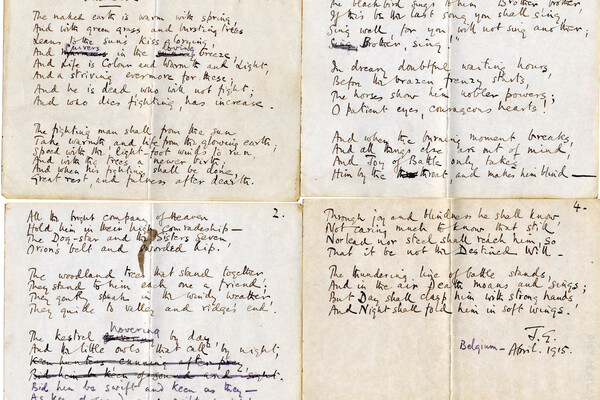 The naked earth is warm with spring,
And with green grass and bursting trees
Leans to the sun's kiss glorying,
And quivers in the loving breeze;
And Life is Colour and Warmth and Light,
And a striving evermore for these;
And he is dead who will not fight;
And who dies fighting has increase.
The fighting man shall from the sun
Take warmth, and life from the glowing earth;
Speed with the light-foot winds to run,
And with the trees a newer birth;
And when his fighting shall be done,
Great rest, and fulness after dearth.
2.
All the bright company of Heaven
Hold him in their high comradeship—
The Dog-star and the Sisters Seven,
Orion's belt and sworded hip.
The woodland trees that stand together
They stand to him each one a friend;
They gently speak in the windy weather,
They guide to valley and ridge's end.
The kestrel hovering by day
And the little owls that call by night,
Keen hunters cunning after prey
Bid him be keen of sound and sight.
Bid him be swift and keen as they—
As keen of
The blackbird sings to him "Brother, brother,
If this be the last song you shall sing
Sing well, for you will not sing another;
Brother, sing!"
In dreary doubtful waiting hours,
Before the brazen frenzy starts,
The horses show him nobler powers;
O patient eyes, courageous hearts!
And when the burning moment breaks,
And all things else are out of mind,
And Joy of Battle only takes
Him by the throat and makes him blind—
4.
Through joy and blindness he shall know,
Not caring much to know, that still
Nor lead nor steel shall reach him, so
That it be not the Destined Will.
The thundering line of battle stands,
And in the air Death moans and sings;
But Day shall clasp him with strong hands
And Night shall fold him in soft wings.
J. G.
Belgium — April. 1915.